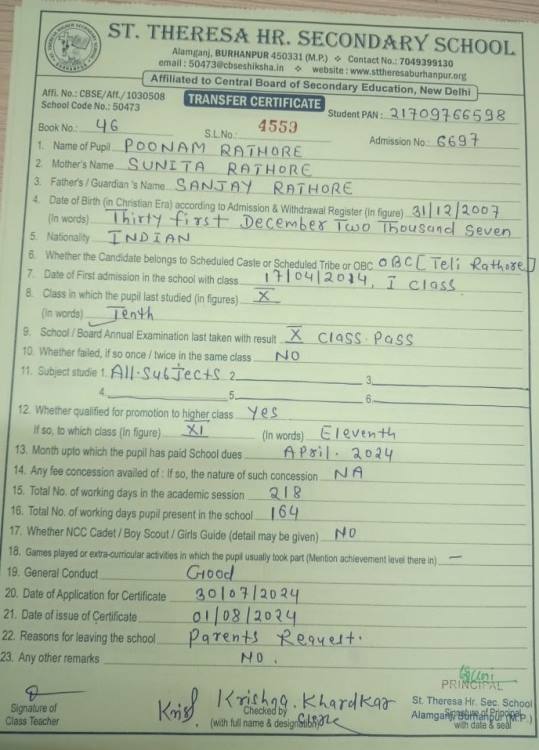 ST. THERESA HR. SECONDARY SCHOOL
Alamganj, BURHANPUR 450331 (M.P.) ❖ Contact No.: 7049399130
email : 50473@cbseshiksha.in ❖ website : www.sttheresaburhanpur.org
Affiliated to Central Board of Secondary Education, New Delhi
Affi. No.: CBSE/Aff./1030508
School Code No.: 50473
TRANSFER CERTIFICATE
Student PAN : 21709766598
Book No.: 46 S.L.No.: 4559 Admission No.: 6697
1. Name of Pupil POONAM RATHORE
2. Mother's Name SUNITA RATHORE
3. Father's / Guardian 's Name SANJAY RATHORE
4. Date of Birth (in Christian Era) according to Admission & Withdrawal Register (In figure) 31/12/2007
(In words) Thirty first December Two Thousand Seven
5. Nationality INDIAN
6. Whether the Candidate belongs to Scheduled Caste or Scheduled Tribe or OBC OBC [Teli Rathore]
7. Date of First admission in the school with class 17/04/2014, I class
8. Class in which the pupil last studied (in figures) X
(in words) Tenth
9. School / Board Annual Examination last taken with result X class. Pass
10. Whether failed, if so once / twice in the same class NO
11. Subject studie 1. All.Subjects 2. 3.
4. 5. 6.
12. Whether qualified for promotion to higher class Yes
If so, to which class (In figure) XI (In words) Eleventh
13. Month upto which the pupil has paid School dues April. 2024
14. Any fee concession availed of : If so, the nature of such concession NA
15. Total No. of working days in the academic session 218
16. Total No. of working days pupil present in the school 164
17. Whether NCC Cadet / Boy Scout / Girls Guide (detail may be given) NO
18. Games played or extra-curricular activities in which the pupil usually took part (Mention achievement level there in) —
19. General Conduct Good
20. Date of Application for Certificate 30/07/2024
21. Date of issue of Certificate 01/08/2024
22. Reasons for leaving the school Parents Request.
23. Any other remarks NO.
PRINCIPAL
Krishna. Khardkar
St. Theresa Hr. Sec. School
Signature of Checked by Alamganj, Burhanpur (M.P.)
Signature of Principal
Class Teacher (with full name & designation) with date & seal